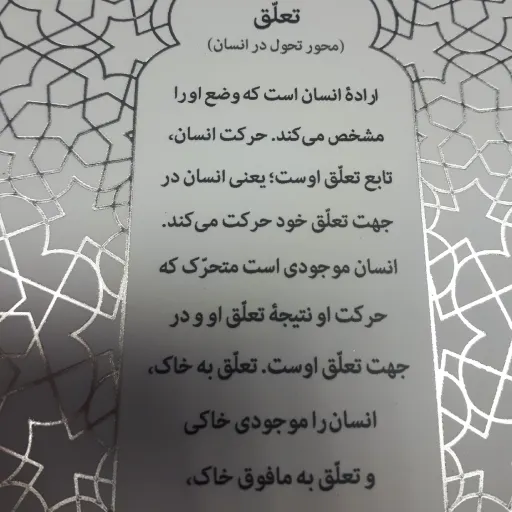 تعلّق
(محور تحول در انسان)
ارادهٔ انسان است که وضع او را
مشخص می‌کند. حرکت انسان،
تابع تعلّق اوست؛ یعنی انسان در
جهت تعلّق خود حرکت می‌کند.
انسان موجودی است متحرّک که
حرکت او نتیجهٔ تعلّق او و در
جهت تعلّق اوست. تعلّق به خاک،
انسان را موجودی خاکی
و تعلّق به مافوق خاک،